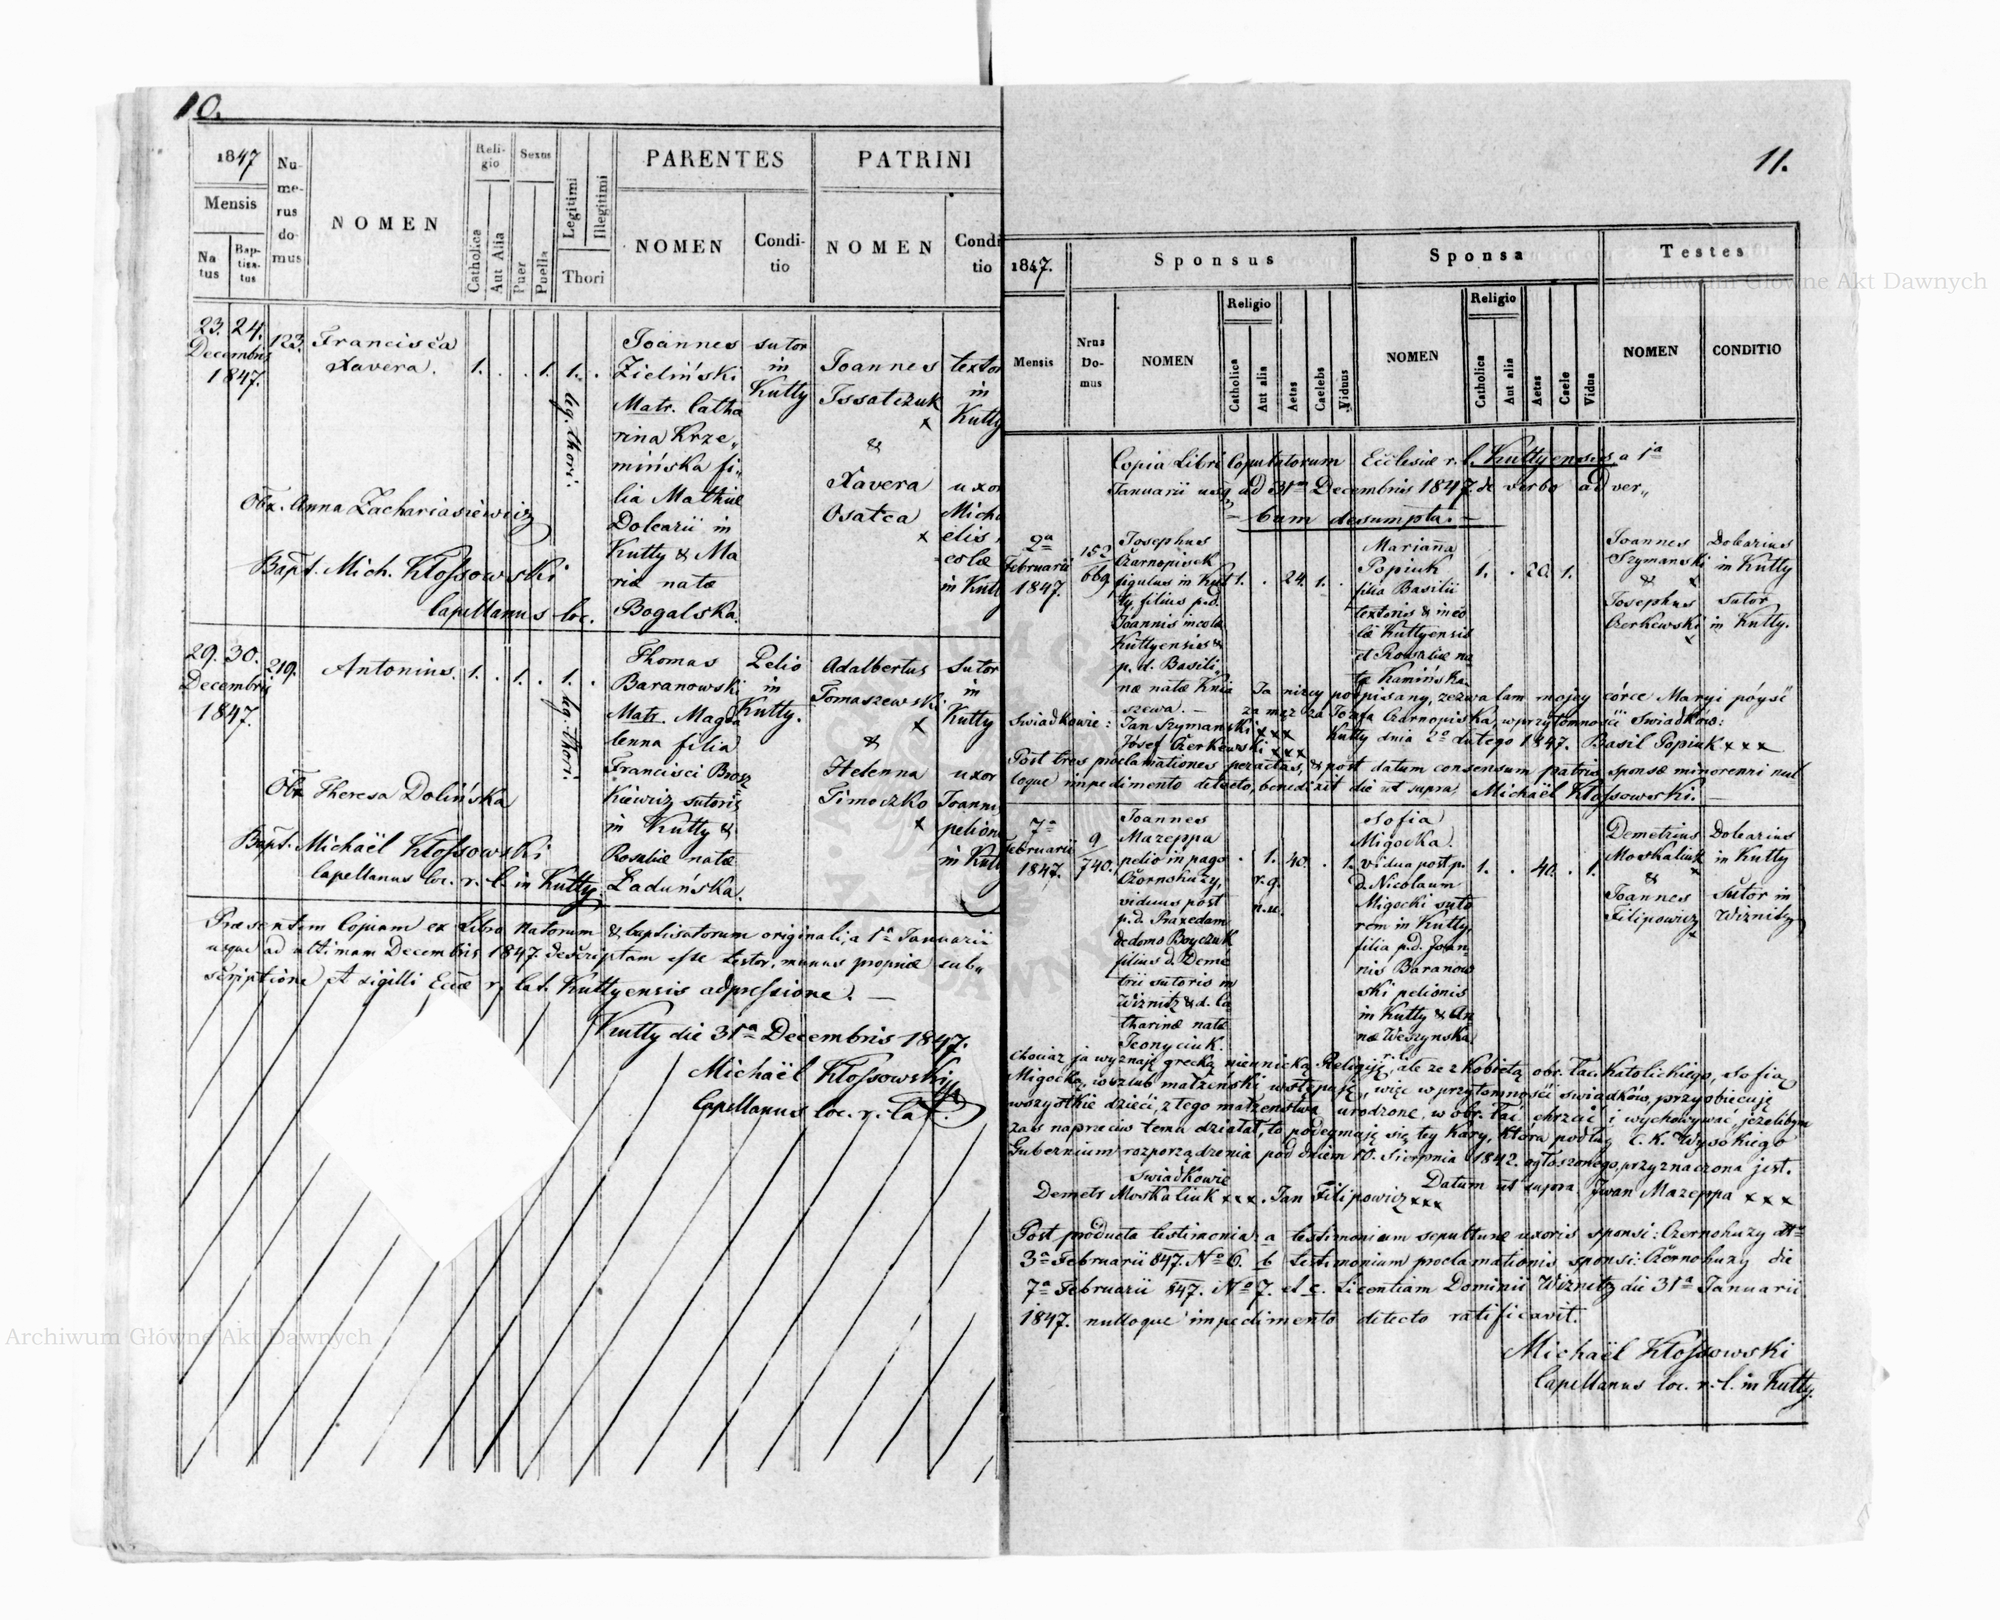 10.
1847
Mensis
Na
tus
Bap-
tisa-
tus
Nu-
me-
rus
do-
mus
NOMEN
Reli-
gio
Catholica
Aut Alia
Sexus
Puer
Puella
Legitimi
Illegitimi
Thori
PARENTES
NOMEN
Condi-
tio
PATRINI
NOMEN
Condi
tio
23. 24.
Decembris
1847.
123.
Francisca
Xavera.
1. . . 1. 1. .
leg. thori.
Joannes
Zieliński
Matr. Catha
rina Krze„
mińska fi„
lia Mathiæ
Dolearii in
Kutty & Ma
riæ natæ
Bogalska.
sutor
in
Kutty
Joannes
Issatczuk
x
&
Xavera
Osatca
x
textor
in
Kutty
uxor
Micha
elis,
colæ
in Kutt
Obx. Anna Zachariasiewicz
Bapt. Mich. Kłossowski
Capellanus loc.
29. 30.
Decembris
1847.
219.
Antonius.
1. . 1. . 1. .
leg. thori.
Thomas
Baranowski
Matr. Magda
lenna filia
Francisci Brosz
kiewicz sutoris
in Kutty &
Rosaliæ natæ
Laduńska.
Pelio
in
Kutty.
Adalbertus
Tomaszewski
x
&
Helenna
Timoczko
x
Sutor
in
Kutty
uxor
Joannis
pelionis
in Kutty
Obx Theresa Dolińska
Bapt. Michaël Kłossowski
Capellanus loc. r. l. in Kutty.
Præsentem Copiam ex Libro Natorum & baptisatorum originali, a 1ª Januarii
usque ad ultimam Decembris 1847. descriptam esse testor, manus propriæ sub„
scriptione et sigilli Eccæ r. lat. Kuttyensis adpressione. —
Kutty die 31ª Decembris 1847.
Michaël Kłossowski
Capellanus loc. r. lat.
11.
1847.
Mensis
Nrus
Do-
mus
Sponsus
NOMEN
Religio
Catholica
Aut alia
Aetas
Caelebs
Viduus
Sponsa
NOMEN
Religio
Catholica
Aut alia
Aetas
Caele
Vidua
Testes
NOMEN
CONDITIO
Copia Libri Copulatorum Ecclesiæ r. l. Kuttyensis a 1ª
Januarii usq ad 31am Decembris 1847. de verbo ad ver„
— bum desumpta. —
2ª
Februarii
1847.
152
669
Josephus
Czarnopisek
figulus in Kut
ty, filius p. d.
Joannis incolæ
Kuttyensis &
p. d. Basili
næ natæ Knia
szewa. —
1. . 24. 1. .
Marianna
Popiuk
filia Basilii
textoris & inco
læ Kuttyensis
et Rosaliæ na
tæ Kamińska.
1. . 20. 1.
Joannes
Szymanski
x
&
Josephus
Czerkewski
x
Dolearius
in Kutty
Sutor
in Kutty.
Ja nizey podpisany, zezwalam mojey córce Maryi póyść
za mąż za Józefa Czarnopiska, w przytomności Swiadków:
Swiadkowie: Jan Szymanski xxx
Józef Czerkewski xxx
Kutty dnia 2º Lutego 1847. Basil Popiuk xxx
Post tres proclamationes peractas, & post datum consensum patris sponsæ minorenni nul
loque impedimento detecto, benedixit die ut supra, Michaël Kłossowski. —
7ª
Februarii
1847.
9
740.
Joannes
Mazeppa
pelio in pago
Czornohuzy,
viduus post
p. d. Praxedam
de domo Boyczuk
filius d. Deme
trii sutoris in
Wiznitz & d. Ca
tharinæ natæ
Teonyciuk.
. 1. 40. . 1.
r. g.
n. u.
Sofia
Migocka.
vidua post p.
d. Nicolaum
Migocki suto
rem in Kutty,
filia p. d. Joan
nis Baranow
ski pelionis
in Kutty & An
næ Weszynska
1. . 40. . 1.
Demetrius
Moskaliuk
x
&
Joannes
Filipowicz
x
Dolearius
in Kutty
Sutor in
Wiznitz
Chociaz ja wyznaję grecką niennicką Religiję, ale ze z kobietą obr. łac. katolickiego, Sofią
Migocką, w szlub małzeński wstępuję, więc w przytomności swiadków, przyobiecuję
wszystkie dzieci, z tego małzeństwa urodzone, w obr. łac. chrzcić i wychowywać, jezelibym
zaś naprzeciw temu działał, to podeymaję się tey kary, która podług C. K. Wysokiego
Gubernium rozporządzenia pod dniem 10. Sierpnia 1842. ogłoszonego, przyznaczona jest.
Swiadkowie
Datum ut supra, Jwan Mazeppa xxx
Demetr Moskaliuk xxx. Jan Filipowicz xxx
Post producta testimonia a testimonium sepulturæ uxoris sponsi: Czernohuzy dto
3ª Februarii 847. Nº 6. b testimonium proclamationis sponsi: Czornohuzy die
7ª Februarii 847. Nº 7. et c. Licentiam Dominii Wiznitz die 31ª Januarii
1847. nulloque impedimento detecto ratificavit.
Michaël Kłossowski
Capellanus loc. r. l. in Kutty.
Archiwum Główne Akt Dawnych
Archiwum Główne Akt Dawnych